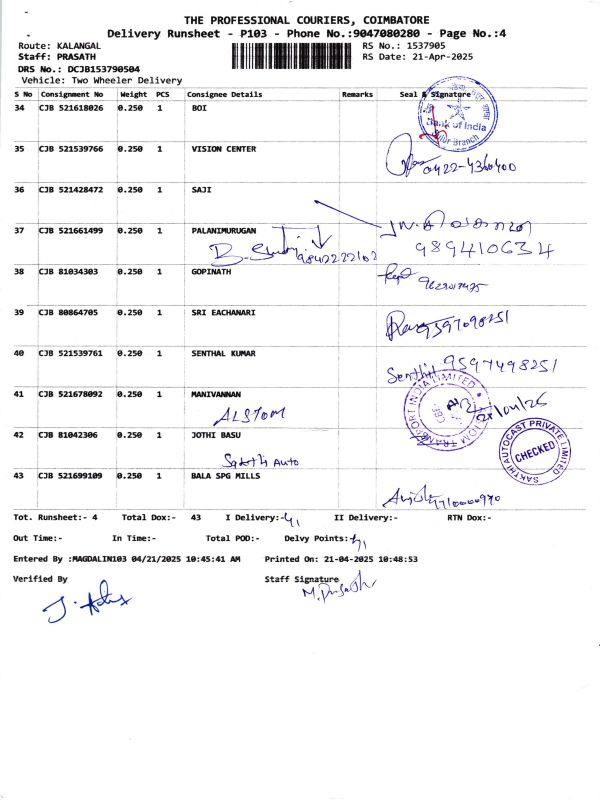 THE PROFESSIONAL COURIERS, COIMBATORE
Delivery Runsheet - P103 - Phone No.:9047080280 - Page No.:4
Route: KALANGAL
RS No.: 1537905
Staff: PRASATH
RS Date: 21-Apr-2025
DRS No.: DCJB153790504
Vehicle: Two Wheeler Delivery
S No Consignment No Weight PCS Consignee Details Remarks Seal & Signature
34 CJB 521618026 0.250 1 BOI
Bank of India
Branch
35 CJB 521539766 0.250 1 VISION CENTER
0422-4360400
36 CJB 521428472 0.250 1 SAJI
37 CJB 521661499 0.250 1 PALANIMURUGAN
9894106334
38 CJB 81034303 0.250 1 GOPINATH
39 CJB 80864705 0.250 1 SRI EACHANARI
9597098251
40 CJB 521539761 0.250 1 SENTHAL KUMAR
Senthil 9597498251
41 CJB 521678092 0.250 1 MANIVANNAN
ALSTOM
42 CJB 81042306 0.250 1 JOTHI BASU
Sakthi Auto
SAKTHI AUTOCAST PRIVATE LIMITED
CHECKED
43 CJB 521699109 0.250 1 BALA SPG MILLS
Tot. Runsheet:- 4 Total Dox:- 43 I Delivery:- II Delivery:- RTN Dox:-
Out Time:- In Time:- Total POD:- Delvy Points:-
Entered By :MAGDALIN103 04/21/2025 10:45:41 AM Printed On: 21-04-2025 10:48:53
Verified By Staff Signature
M. Prasath